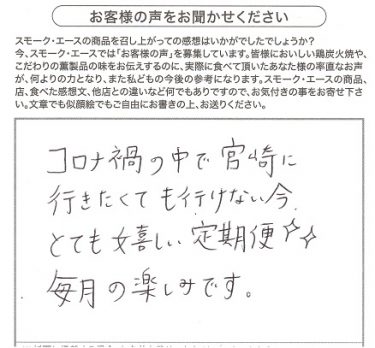 お客様の声をお聞かせください
スモーク・エースの商品を召し上がっての感想はいかがでしたでしょうか？
今、スモーク・エースでは「お客様の声」を募集しています。皆様においしい鶏炭火焼や、
こだわりの薫製品の味をお伝えするのに、実際に食べて頂いたあなた様の率直なお声
が、何よりの力となり、また私どもの今後の参考になります。スモーク・エースの商品、
店、食べた感想文、他店との違いなど何でもありですので、お気付きの事をお寄せ下さ
い。文章でも似顔絵でもご自由にお書きの上、お送りください。
コロナ禍の中で宮崎に
行きたくても行けない今
とても嬉しい定期便☆☆
毎月の楽しみです。